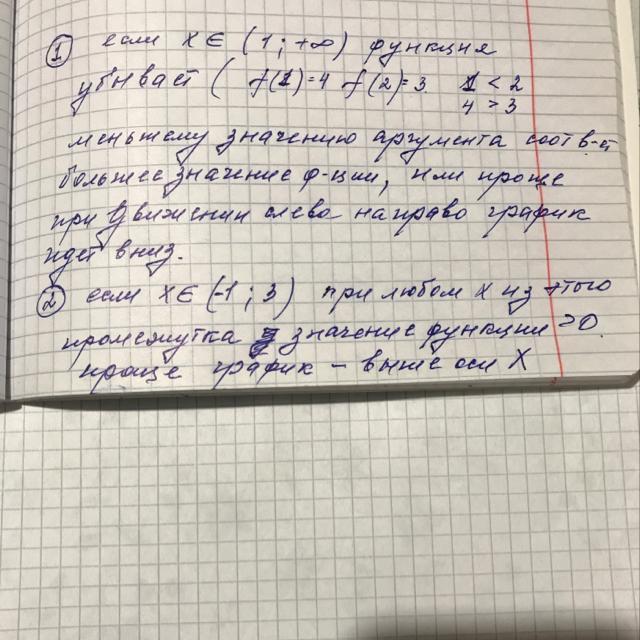 ① если x ∈ (1; +∞) функция
убывает ( f(1)=4 f(2)=3 1 < 2
4 > 3
меньшему значению аргумента соотв-ет
большее значение ф-ции, или проще
при движении слева направо график
идет вниз.
② если x ∈ (-1; 3) при любом x из этого
промежутка значение функции >0.
проще график – выше оси X